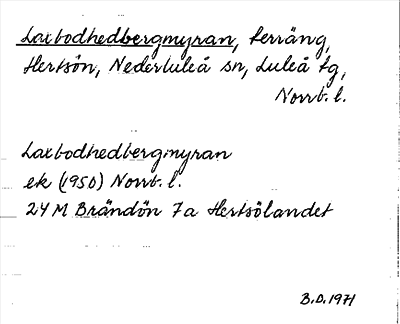 Laxbodhedbergmyran, terräng,
Hertsön, Nederluleå sn, Luleå tg,
Norrb. l.
Laxbodhedbergmyran
ek (1950) Norrb. l.
24 M Brändön 7a Hertsölandet
B.D. 1971